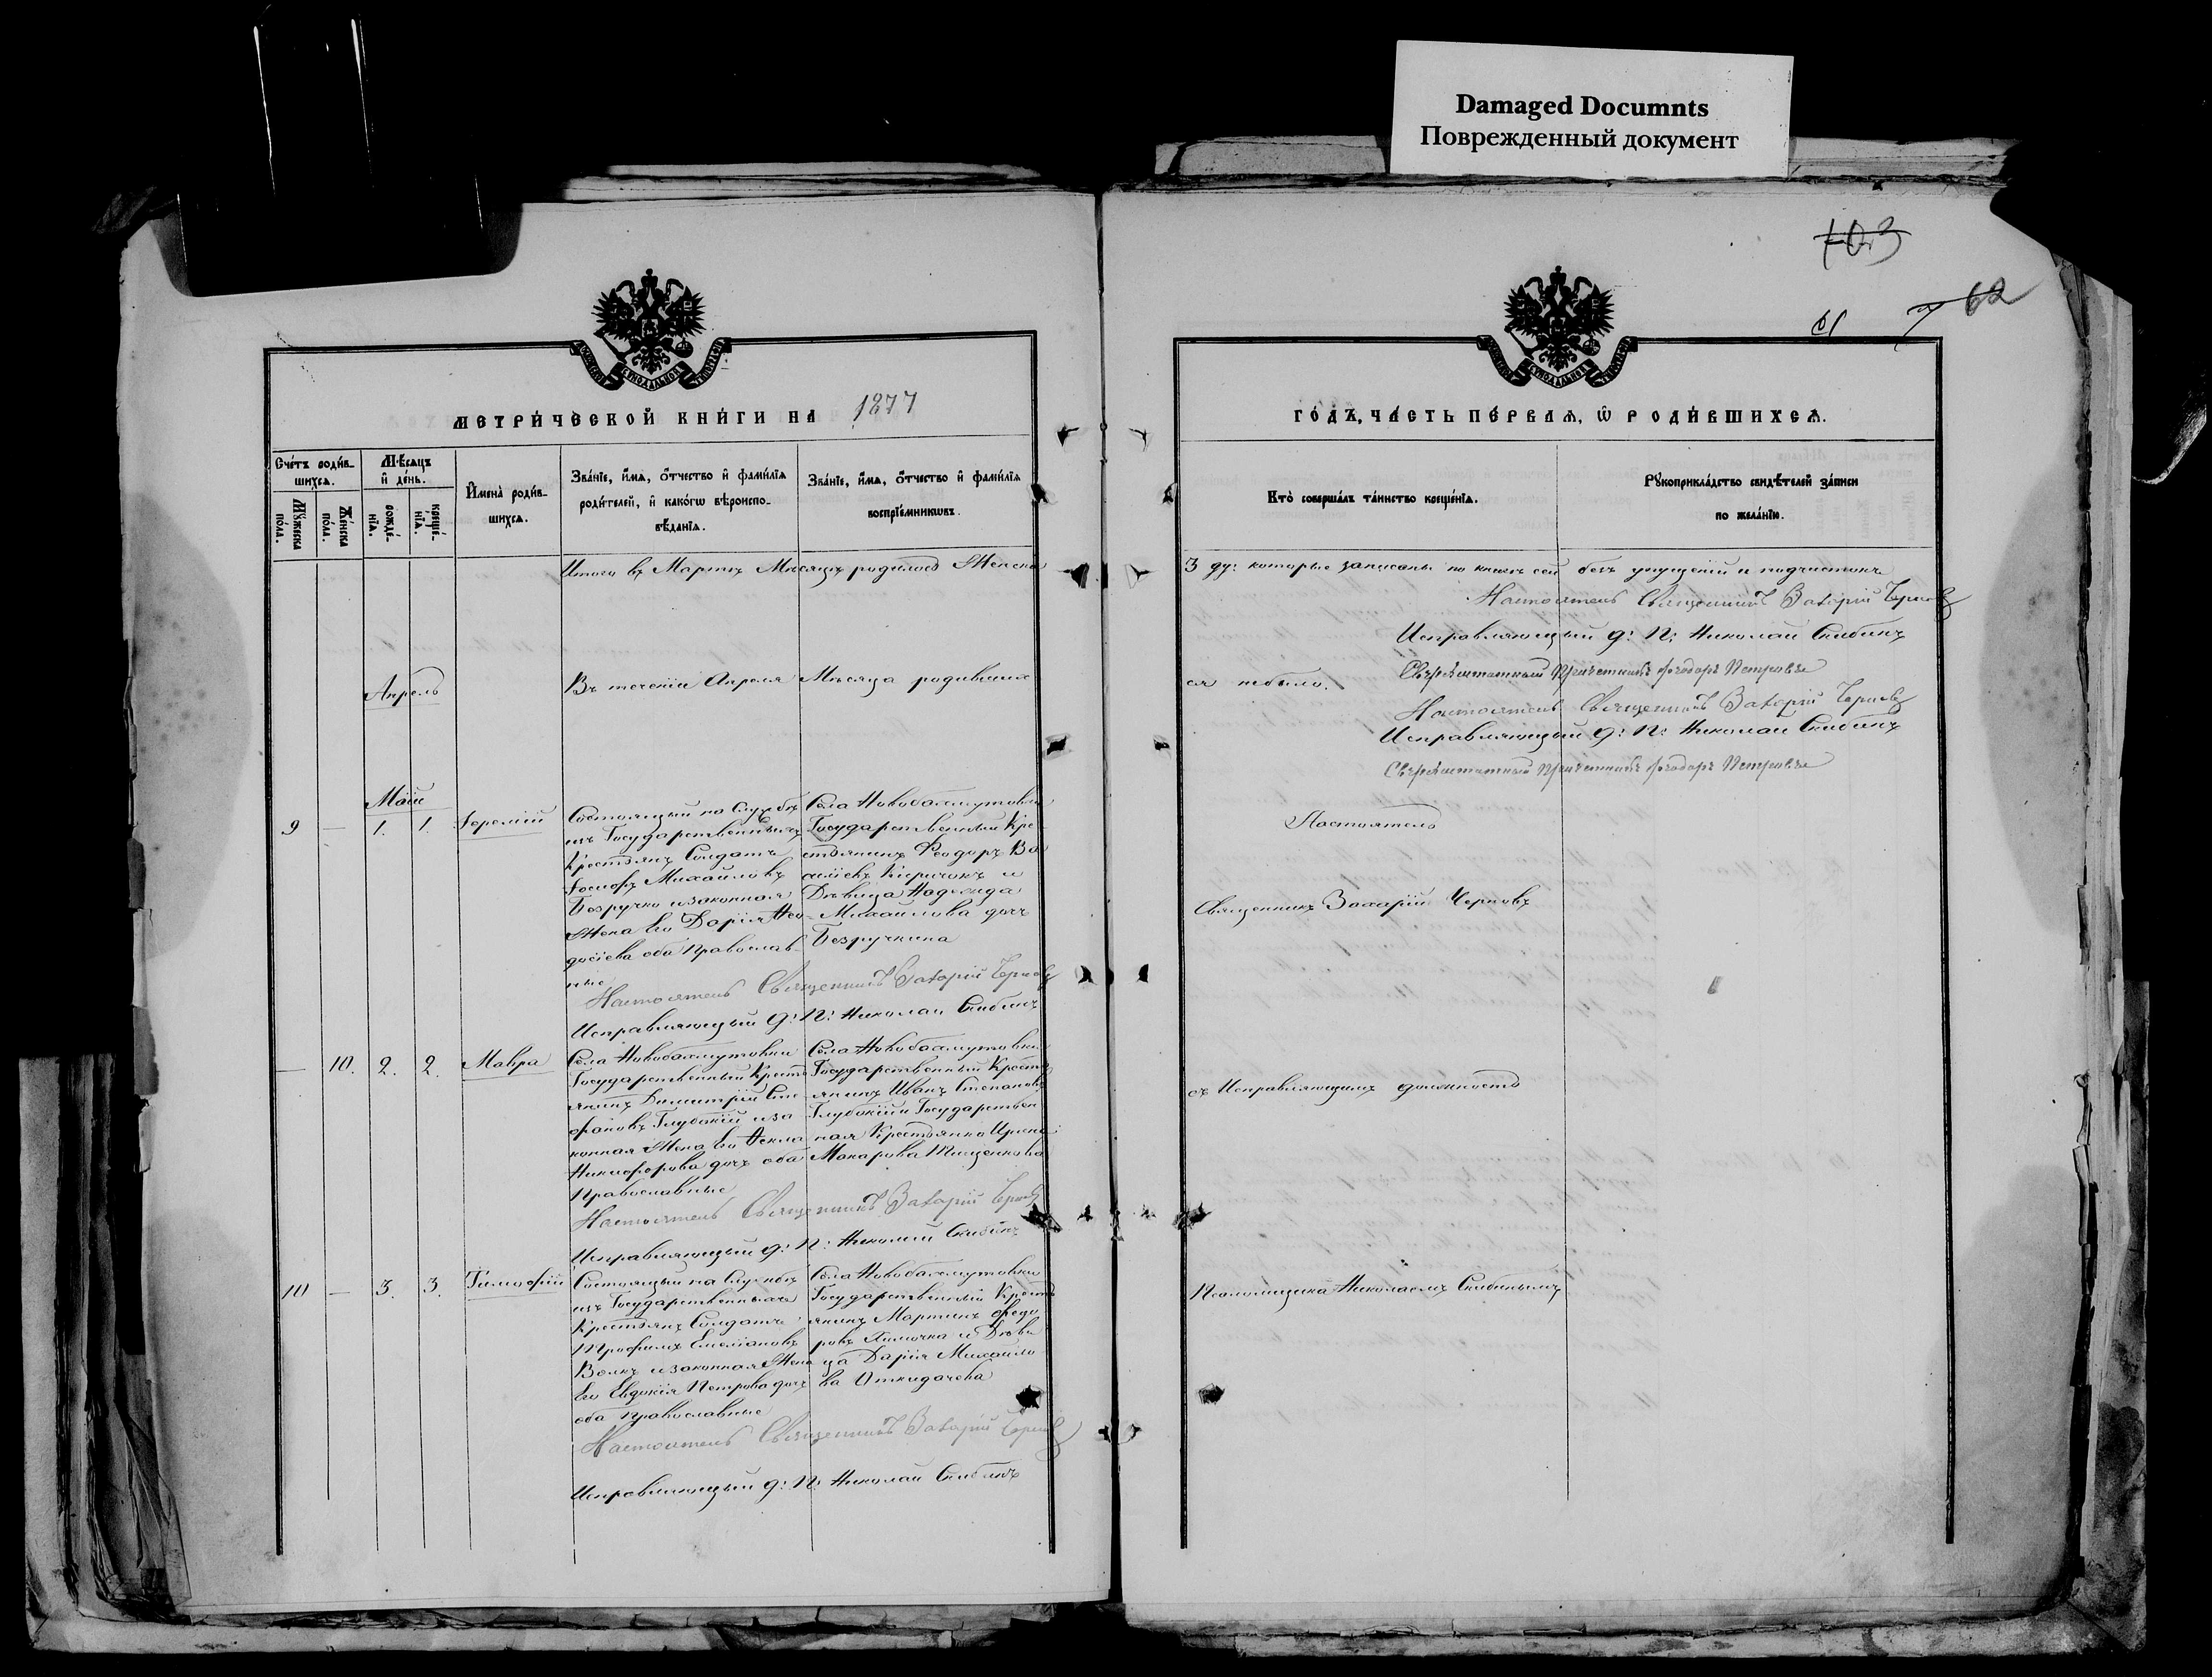 Damaged Documnts
Поврежденный документ
103
61
62
МЕТРИ́ЧЕСКОЙ КНИ́ГИ НА 1877
ГО́ДЪ, ЧА́СТЬ ПЕ́РВАѦ, Ѡ РОДИ́ВШИХСѦ.
Сче́тъ роди́в-
шихсѧ.
Мꙋ́жеска
по́ла.
Же́нска
по́ла.
Мѣ́сѧцъ
и҆ де́нь.
рожде́-
нїѧ.
креще́-
нїѧ.
И҆мена̀ роди́в-
шихсѧ.
Зва́нїе, и҆́мѧ, ѻ҆́тчество и҆ фами́лїѧ
роди́телей, и҆ како́гѡ вѣроиспо-
вѣ́данїѧ.
Зва́нїе, и҆́мѧ, ѻ҆́тчество и҆ фами́лїѧ
воспрїе́мникѡвъ.
Кто̀ соверша́лъ та́инство креще́нїѧ.
Рꙋкоприкла́дство свидѣ́телей за́писи
по жела́нїю.
Итого въ Мартѣ Мѣсяцѣ родилось Женска
3 ду: которые записаны по книгѣ сей безъ упущеній и подчистокъ
Настоятель Священникъ Захарій Черновъ
Исправляющій д: П: Николай Скибинъ
Сверхштатный Причетникъ Ѳеодоръ Петровъ
Апрель
Въ теченіи Апреля Мѣсяца родивших
ся небыло.
Настоятель Священникъ Захарій Черновъ
Исправляющій д: П: Николай Скибинъ
Сверхштатный Причетникъ Ѳеодоръ Петровъ
Май
9 — 1. 1. Іеремій
Состоящый на Службѣ
изъ Государственныхъ
Крестьянъ Солдатъ
Іосифъ Михайловъ
Безручко и законная
Жена его Дарія Ѳео
досіева оба православ
ные
Села Новобахмутовки
Государственный Кре
стьянинъ Феодоръ Ва
силіевъ Киричокъ и
Дѣвица Надежда
Михайлова дочь
Безручкина
Настоятель Священникъ Захарій Черновъ
Исправляющый д: П: Николай Скибинъ
— 10. 2. 2. Мавра
Села Новобахмутовки
Государственный Кресть
янинъ Димитрій Сте
фановъ Глубокій и за
конная Жена его Ѳекла
Никифорова дочь оба
Православные
Села Новобахмутовки
Государственный Кресть
янинъ Иванъ Степановъ
Глубокій и Государствен
ная Крестьянка Ирина
Макарова Тищенкова
Настоятель Священникъ Захарій Черновъ
Исправляющый д: П: Николай Скибинъ
10 — 3. 3. Тимофій
Состоящый на Службѣ
изъ Государственныхъ
Крестьянъ Солдатъ
Трофимъ Емеліановъ
Волкъ и законная Жена
Его Евдокія Петрова дочь
оба православные
Села Новобахмутовки
Государственный Кресть
янинъ Мартинъ Федо
ровъ и Дѣви
ца Дарія Михайло
ва Откидачева
Настоятель Священникъ Захарій Черновъ
Исправляющый д: П: Николай Скибинъ
Настоятель
Священникъ Захарій Черновъ
съ Исправляющимъ должность
Псаломщика Николаемъ Скибинымъ